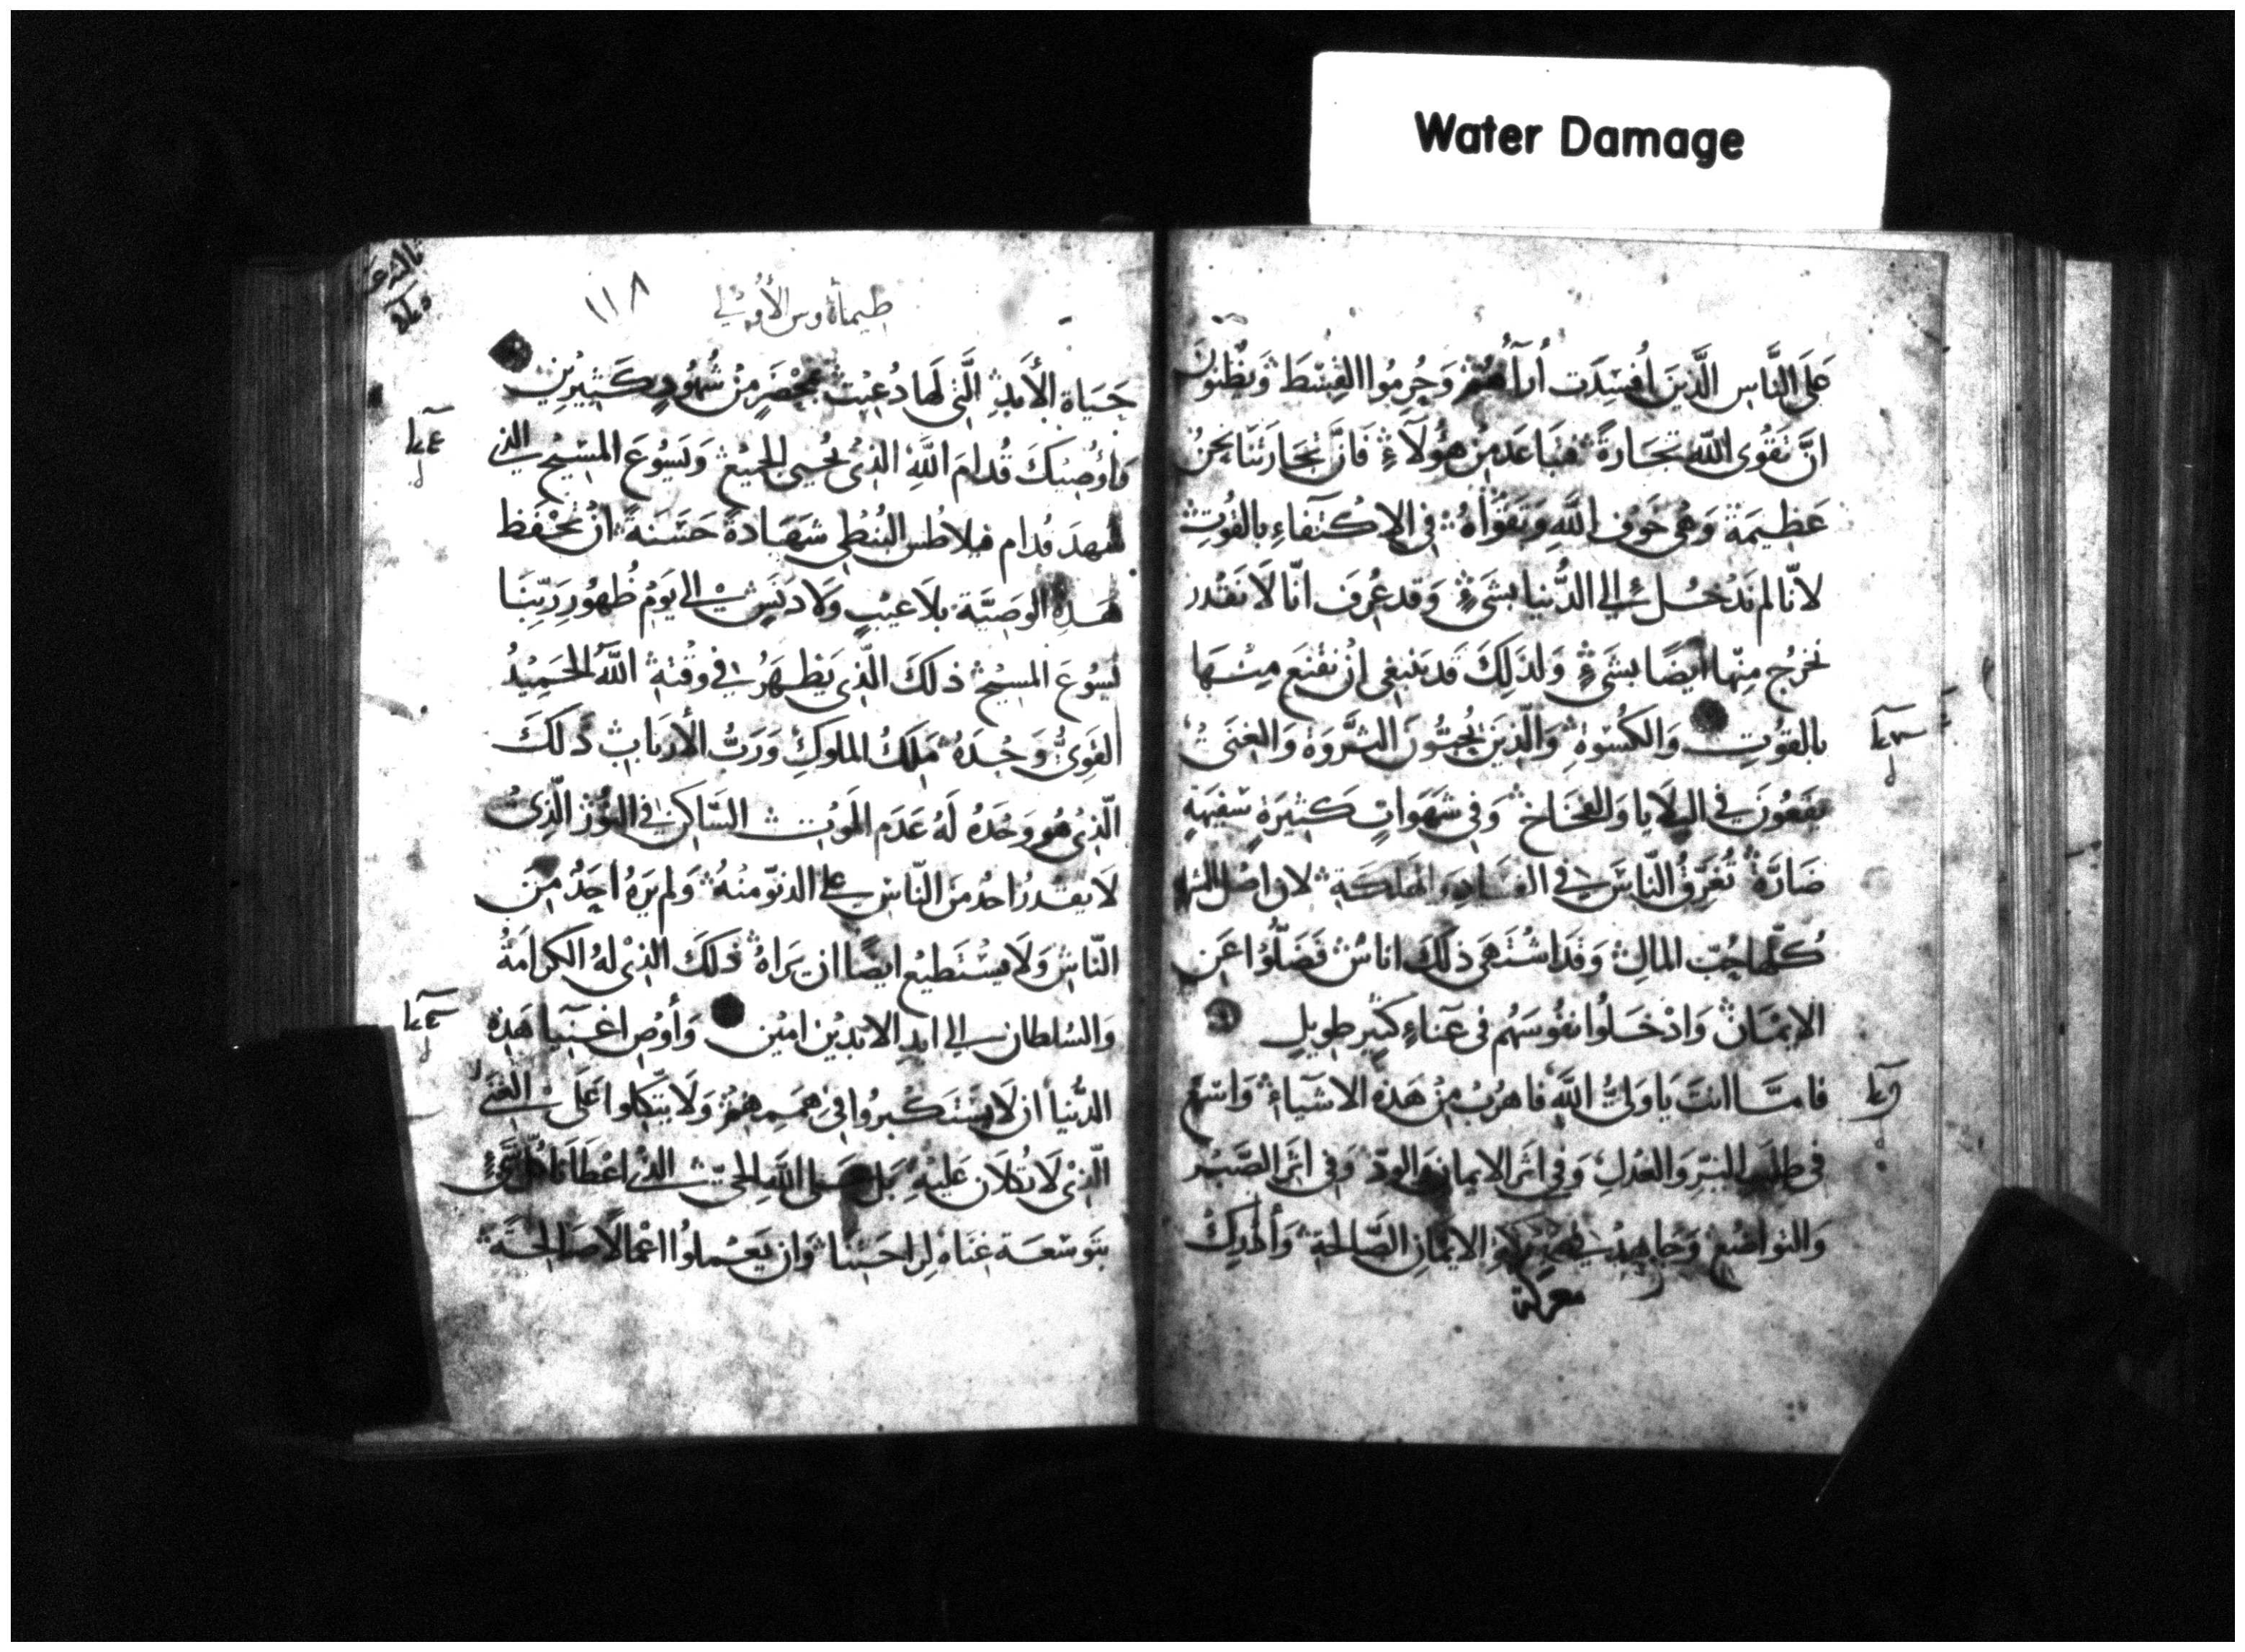 Water Damage
عَلَى النَّاسِ الَّذِينَ اُفسِدَت أرَآءُهُمْ وَحُرِمُوا القِسْطَ وَيَظُنّونَ
انَّ تَقوُى اللّه تجَارةً فتَباعَد مِن هؤُلآءِ فَانَّ تجَارَتَنَا نحنُ
عَظِيمَة وَهى خَوف اللَّهِ وَتَقوَاهُ في الاِكتفَاءِ بالقُوت
لانّا لم نَدْخُل إلى الدُّنيا بشَىءٍ وَقد عُرِفَ انّا لَا نَقْدر
نخرُج مِنها أيضًا بشَىءٍ وَلذَلِكَ قد يَنبَغى انْ نقنَع مِنْهَا
بالقوُتِ وَالكُسْوةِ وَالّذِينَ يُحِبُّونَ الثَّروَة وَالغِنَىٰ
يقَعُونَ في البلَايا وَالفخَاخ وَفي شهَوَاتٍ كَثِيرَةٍ سَفِيهَةٍ
ضَارَّة تُغرِّقُ النّاسَ في الفسَادِ وَالهَلكَةِ لان اصْل الشرِّ
كُلّهَا حُبّ المالِ وَقَد اشتَهَى ذلكَ اناسٌ فَضَلّوُا عَن
الايمَان وَادْخَلُوا نفُوسَهُم فى عَناءٍ كثيرٍ طوِيلٍ
فامّا انتَ يَا وَلىَّ اللَّه فاهرُبْ مِنْ هَذِه الاشيَاءِ وَاسْعَ
فى طلَب البِرِّ وَالعَدلِ وَفِي اثر الايمان وَالودّ وَفي اثر الصَّبْر
وَالتواضُع وَجَاهِد في الايمَانِ الصَّالحَةِ وَأدْرِكْ
معركة
طيماثاوس الأولى
١١٨
حَيَاة الأبَدِ الَّتى لهَا دُعِيْت بمَحْضَرٍ مِنْ شُهُودٍ كَثِيْرِيْن
وَأوُصِيْكَ قُدامَ اللَّهِ الذِىْ يُحْيى الجَمِيْعَ وَيَسُوْعَ المَسِيْحِ الذي
شهدَ قدام فيلاطُس البُنْطِي شهَادةً حَسَنَةً انْ تحْفَظ
هَذِهِ الوَصِيَّة بلَا عَيْبٍ وَلَا دَنَسٍ إلى يَوْم ظُهُور رَبِّنَا
يَسُوعَ المسيْح ذلكَ الّذِى يَظهَرُ في وَقْتِهِ اللَّهُ الحَمِيْدُ
القوِىُّ وَحْدَهُ مَلكُ الملوكِ وَرَبُّ الأربَابِ ذلكَ
الّذِىْ هُو وَحْدَهُ لَهُ عَدَم المَوْت السَّاكن في النُّوْر الَّذِىْ
لَا يقْدرُ احُد مِنَ النّاسِ على الدنوّ منهُ وَلم يَرَهُ احَدٌ مِنَ
النّاسْ وَلَا يسْتَطيع ايضًا ان يَرَاهُ ذلكَ الذِىْ لهُ الكرامَةُ
وَالسُلطان إلى ابدِ الابدِيْن امِيْن وَأوْصِ اغنيَا هَذِهِ
الدُّنيا ان لَا يسْتَكبرُوا في هِمَمِهمْ وَلَا يتّكلوا عَلَى الغِنَى
الّذِىْ لَا تُكلَان عَليْهِ بَل عَلى اللَّهِ الحَيّ الذِى اعْطَانا كُلّ شَىْءٍ
بتَوسعَة غِنَاه لِرَاحَتِنَا وَان يَعْملوُا اعْمالًا صَالحَةً